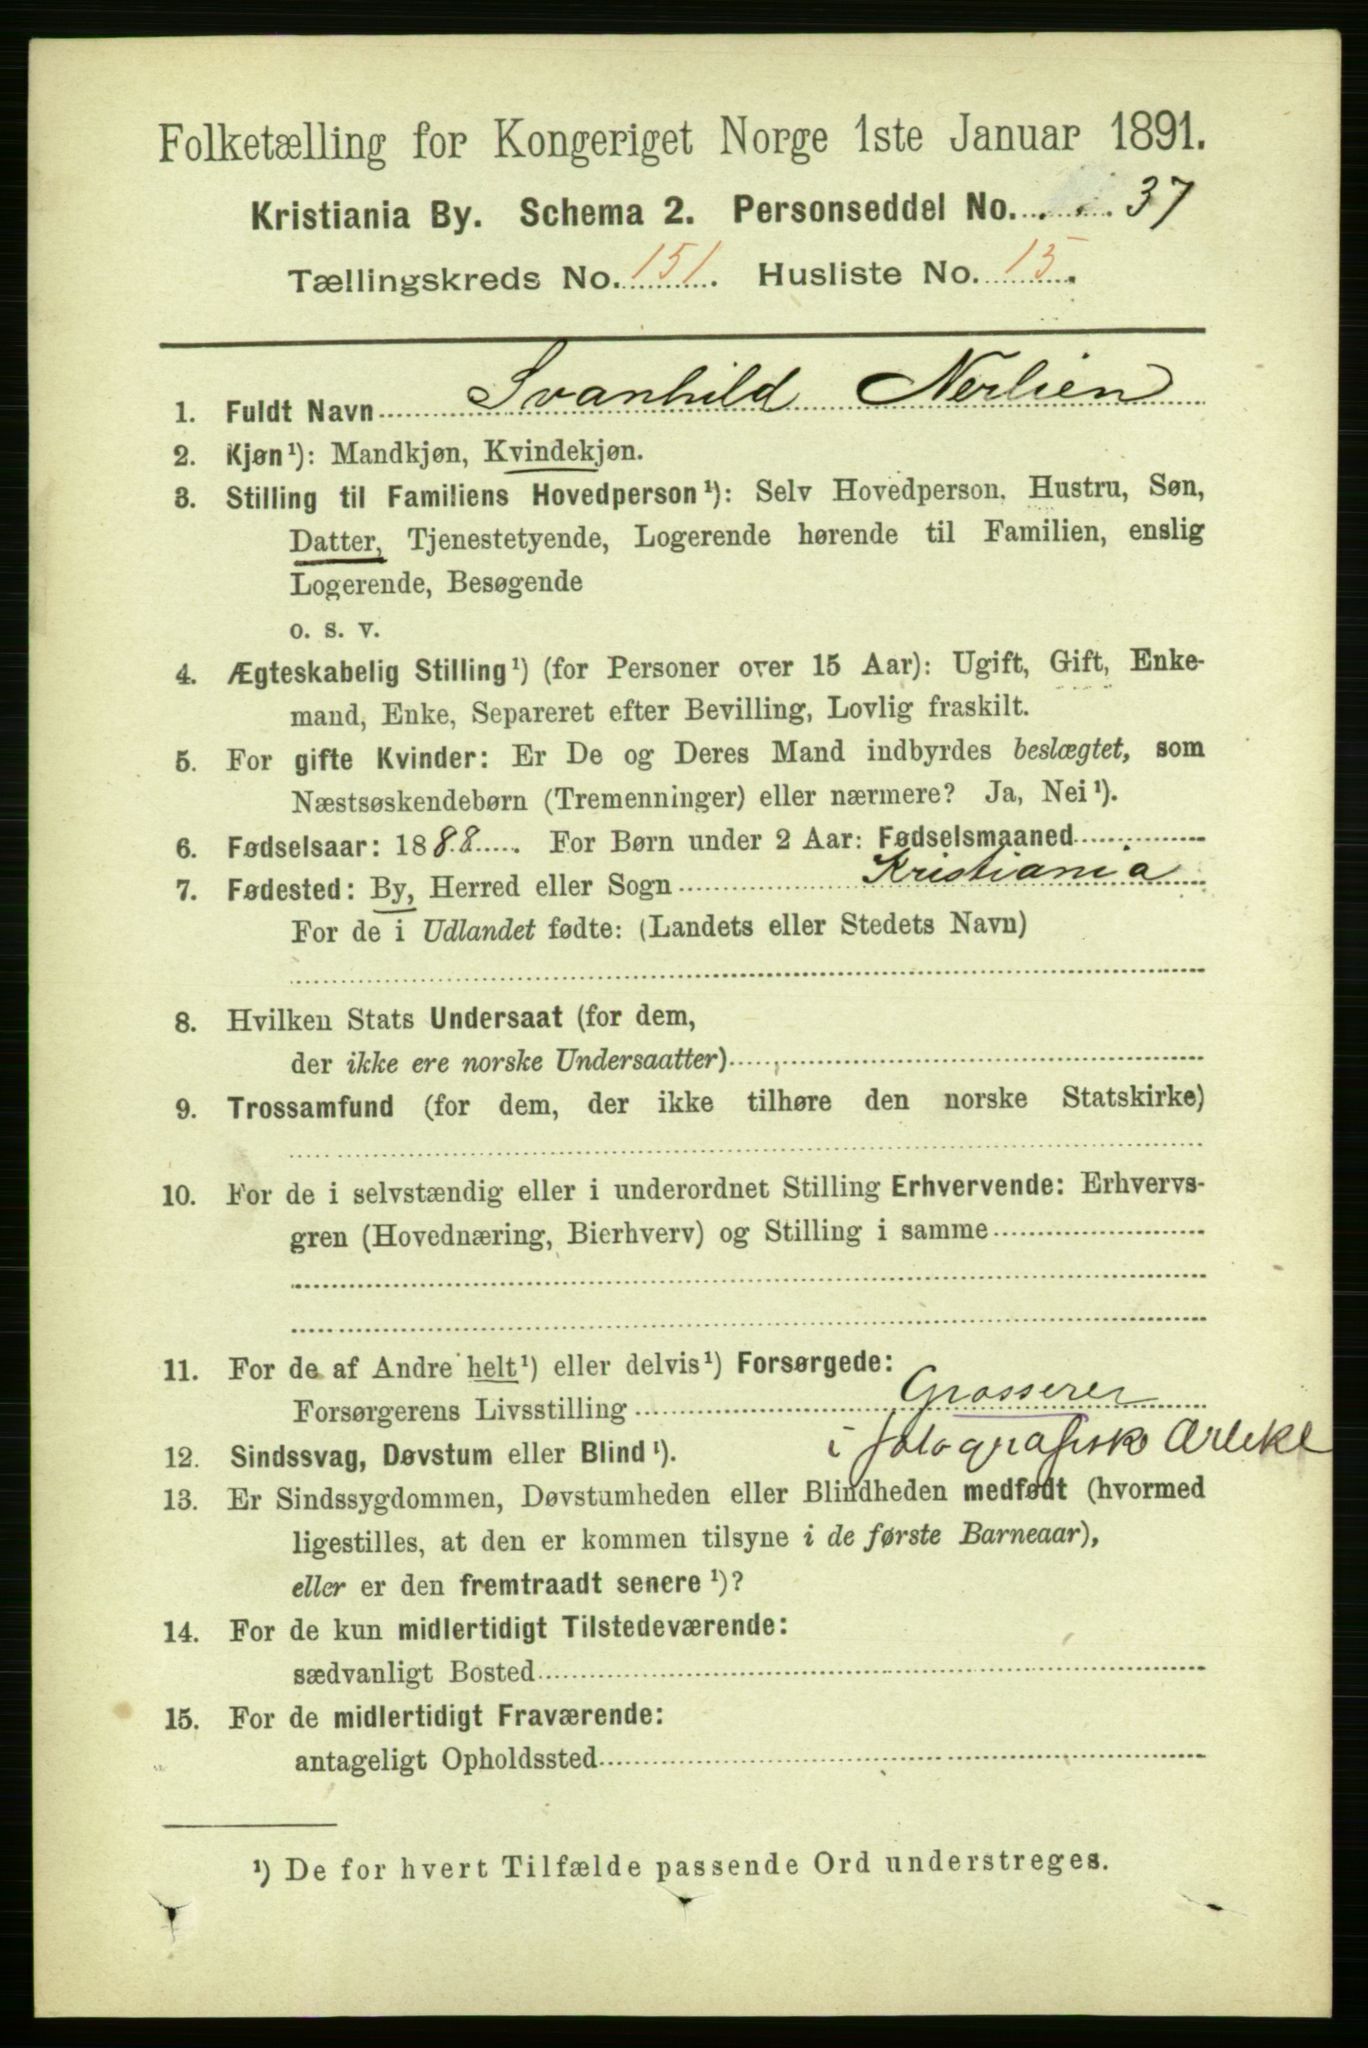 Folketælling for Kongeriget Norge 1ste Januar 1891.
Kristiania By. Schema 2. Personseddel No. 37
Tællingskreds No. 151. Husliste No. 15.
1. Fuldt Navn Svanhild Nerlien
2. Kjøn¹): Mandkjøn, Kvindekjøn.
3. Stilling til Familiens Hovedperson¹): Selv Hovedperson, Hustru, Søn,
Datter, Tjenestetyende, Logerende hørende til Familien, enslig
Logerende, Besøgende
o. s. v.
4. Ægteskabelig Stilling¹) (for Personer over 15 Aar): Ugift, Gift, Enke-
mand, Enke, Separeret efter Bevilling, Lovlig fraskilt.
5. For gifte Kvinder: Er De og Deres Mand indbyrdes beslægtet, som
Næstsøskendebørn (Tremenninger) eller nærmere? Ja, Nei¹).
6. Fødselsaar: 1888. For Børn under 2 Aar: Fødselsmaaned
7. Fødested: By, Herred eller Sogn Kristiania
For de i Udlandet fødte: (Landets eller Stedets Navn)
8. Hvilken Stats Undersaat (for dem,
der ikke ere norske Undersaatter)
9. Trossamfund (for dem, der ikke tilhøre den norske Statskirke)
10. For de i selvstændig eller i underordnet Stilling Erhvervende: Erhvervs-
gren (Hovednæring, Bierhverv) og Stilling i samme
11. For de af Andre helt¹) eller delvis¹) Forsørgede:
Forsørgerens Livsstilling Grosserer
i fotografiske Artikl
12. Sindssvag, Døvstum eller Blind¹).
13. Er Sindssygdommen, Døvstumheden eller Blindheden medfødt (hvormed
ligestilles, at den er kommen tilsyne i de første Barneaar),
eller er den fremtraadt senere¹)?
14. For de kun midlertidigt Tilstedeværende:
sædvanligt Bosted
15. For de midlertidigt Fraværende:
antageligt Opholdssted
¹) De for hvert Tilfælde passende Ord understreges.